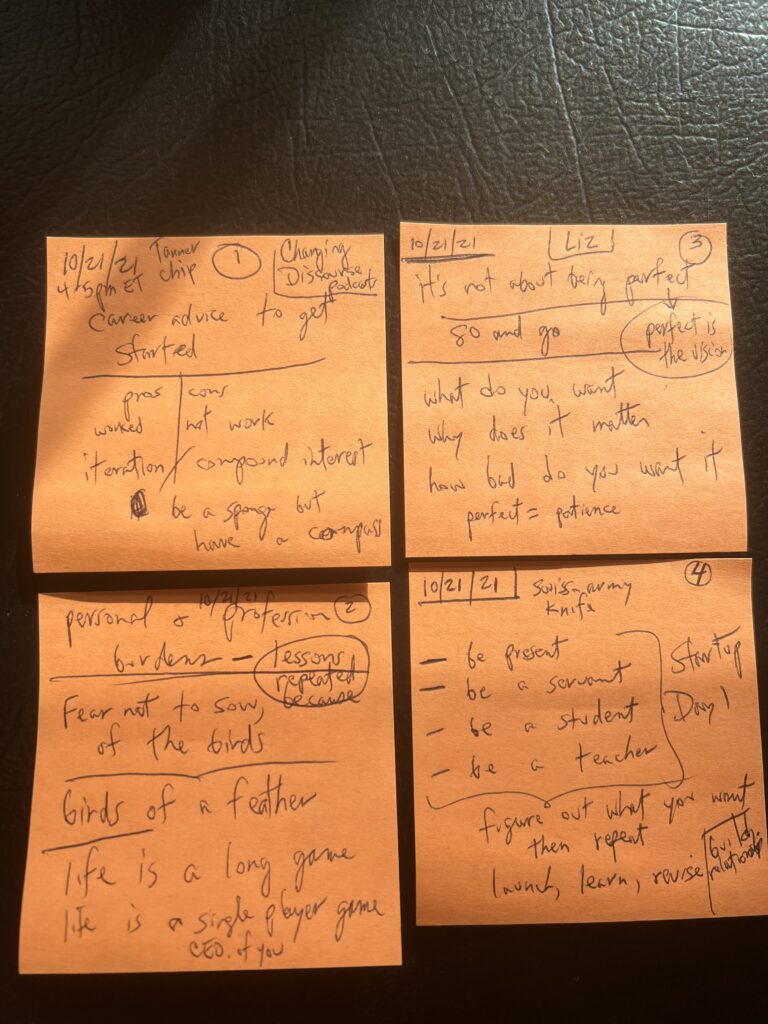 10/21/21 Tanner ① Changing
4-5pm ET chip Discourse
podcasts
career advice to get
started
pros | cons
worked | not work
iteration / compound interest
be a sponge but
have a compass
10/21/21 ②
personal & profession
burdens – lessons
repeated
because
Fear not to sow,
of the birds
birds of a feather
life is a long game
life is a single player game
CEO of you
10/21/21 Liz ③
it's not about being perfect
80 and go
perfect is
the vision
what do you want
why does it matter
how bad do you want it
perfect = patience
10/21/21 Swiss-army ④
knife
– be present
– be a servant
– be a student
– be a teacher
Startup
Day 1
figure out what you want
then repeat
launch, learn, revise
build
relationship